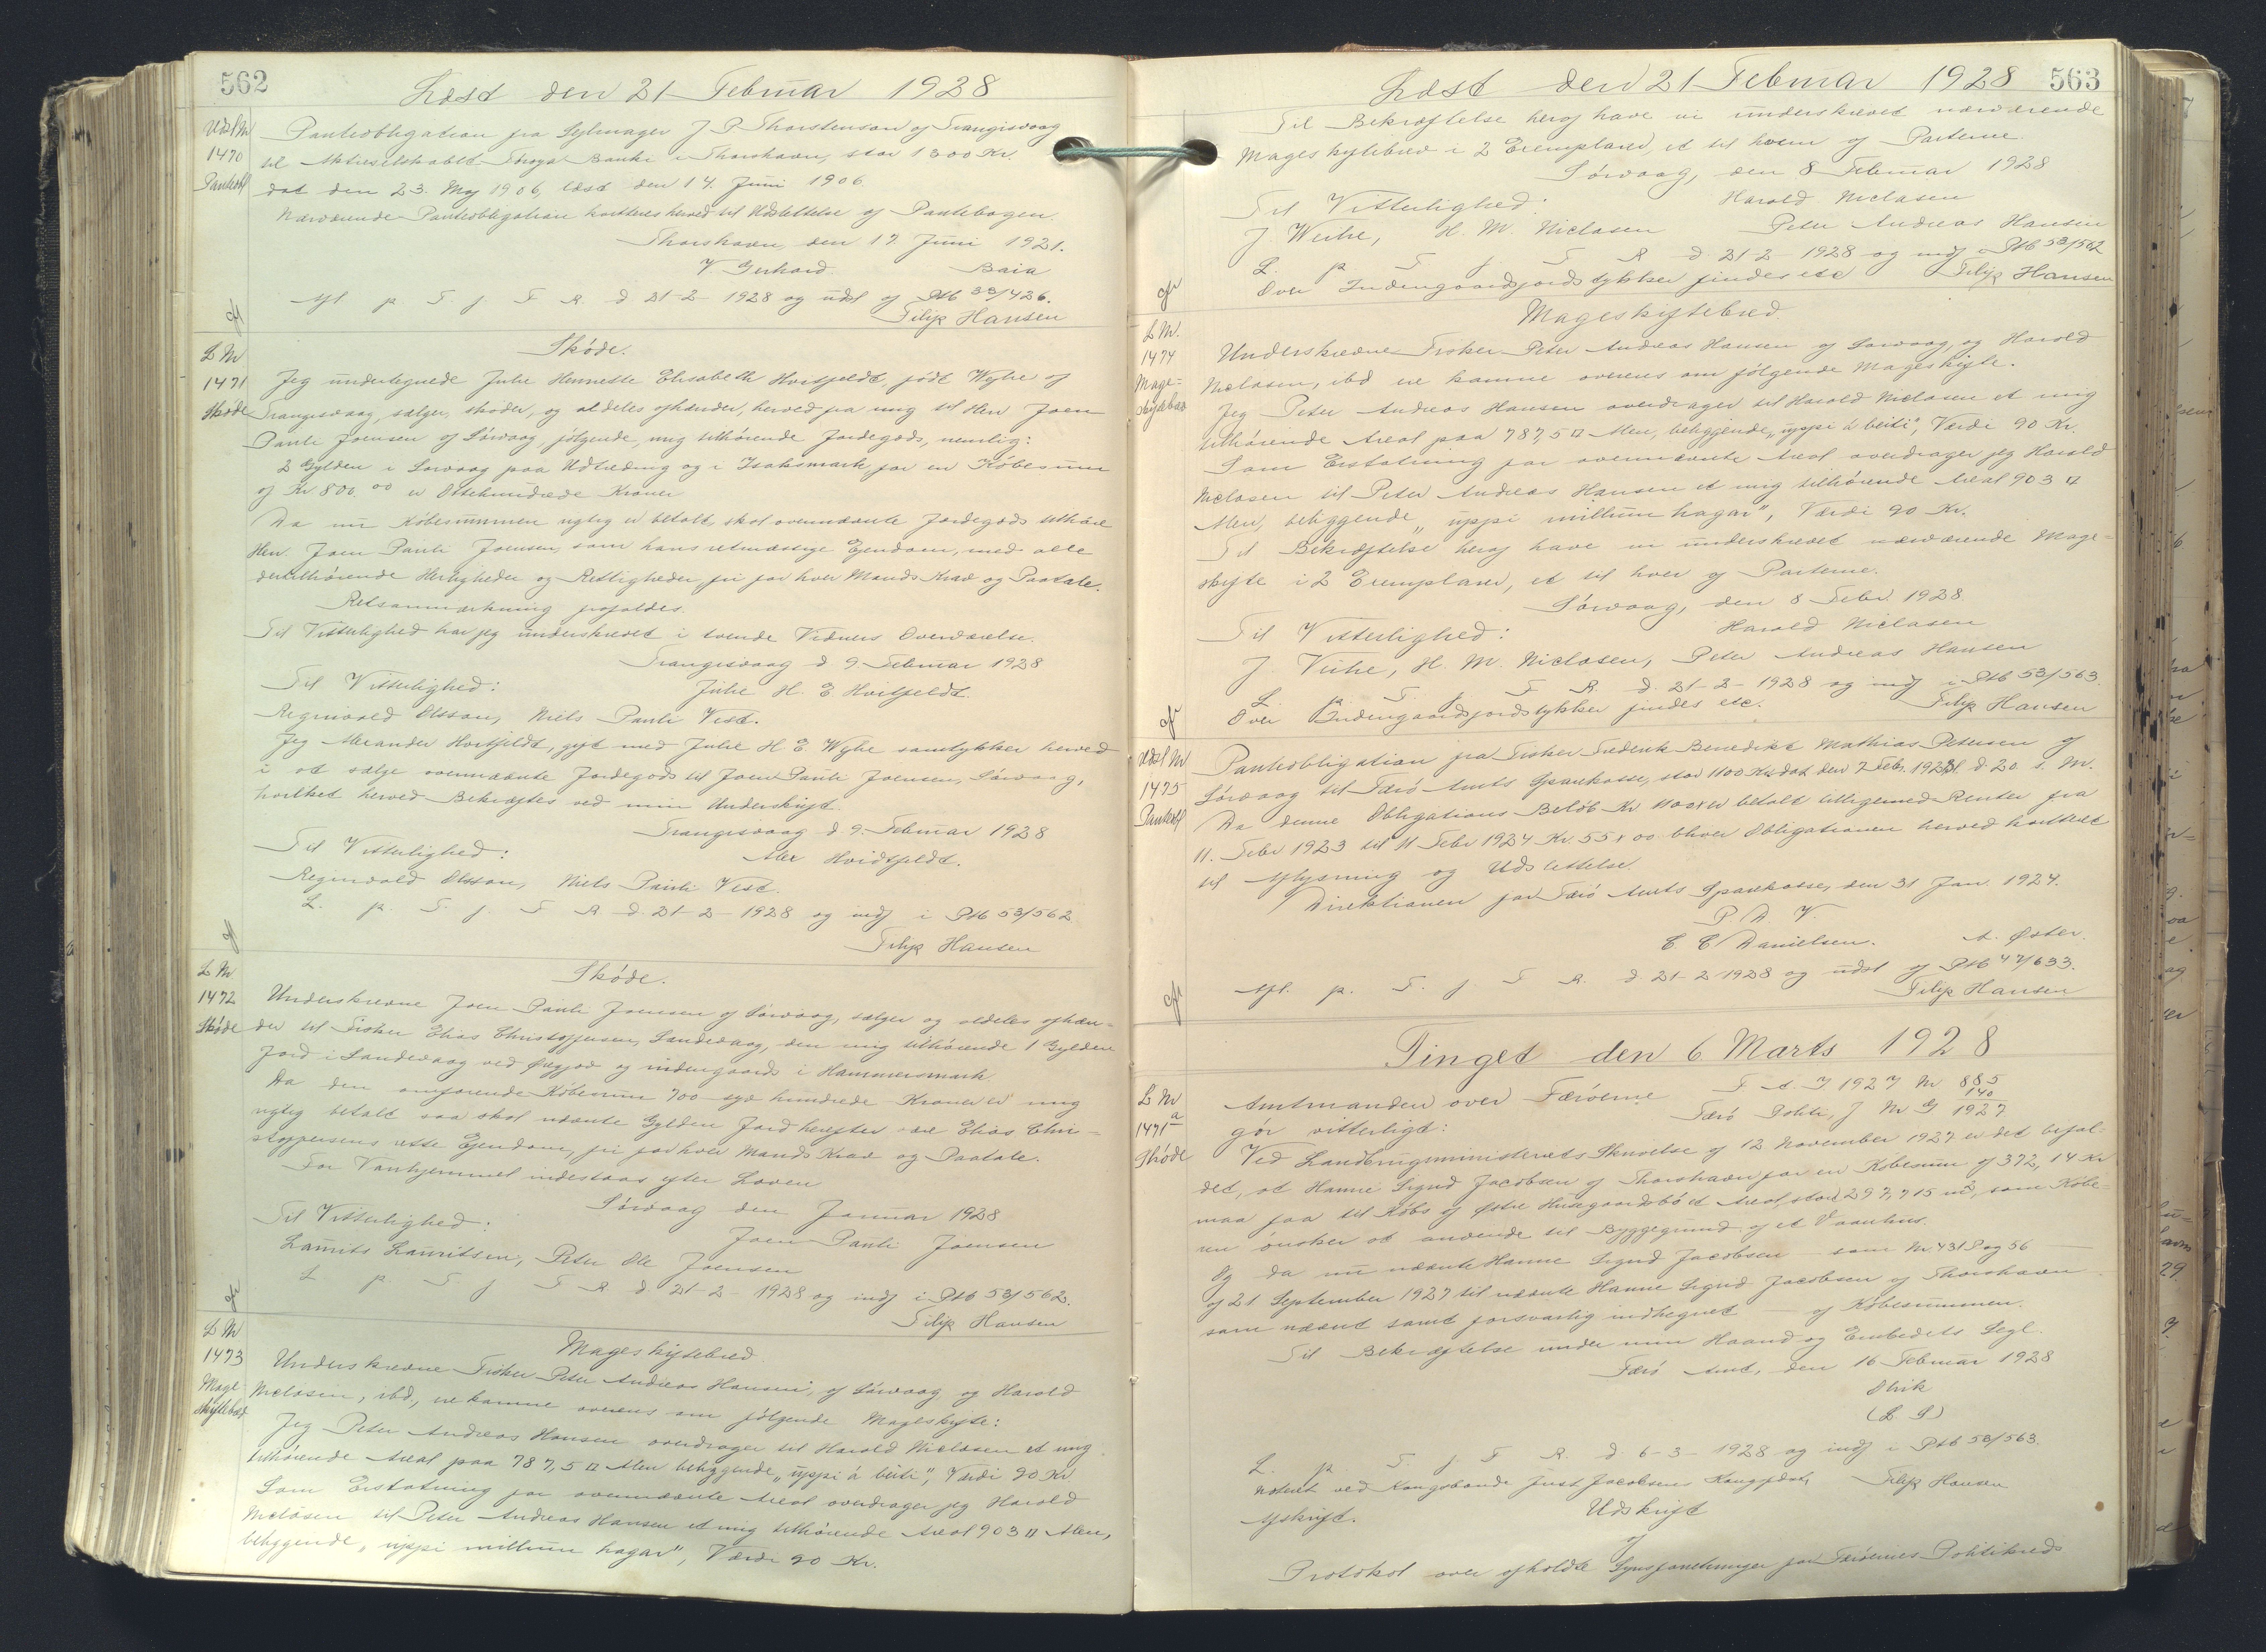 562
Læst den 21 Februar 1928
Udsl Nr
1470
Panteobl
Panteobligation fra Sejlmager J P Thorstenson af Trangisvaag
til Aktieselskabet Færøya Banki i Thorshavn, stor 1300 Kr.
dat den 23. Maj 1906, læst den 14. Juni 1906
Nærværende Panteobligation kvitteres herved til Udslettelse af Pantebogen.
Thorshavn, den 17. Juni 1921.
V Gerhard Baia
Afl p. T. f. F. R. d 21-2- 1928 og udsl af Ptb 33/426.
Filip Hansen
L Nr
1471
Skøde
Skøde.
Jeg undertegnede Julie Henriette Elisabeth Hvitfeldt, født Wyhe af
Trangisvaag, sælger, skøder, og aldeles afhænder, herved fra mig til Herr Joen
Pauli Joensen af Sørvaag følgende, mig tilhørende Jordegods, nemlig:
2 Gylden i Sørvaag paa Udtræding og i Isaksmark, for en Købesum
af Kr 800.00 er Ottehundrede Kroner
Da nu Købesummen rigtig er betalt, skal ovennævnte Jordegods tilhøre
Herr. Joen Pauli Joensen, som hans retmæssige Ejendom, med alle
dertilhørende Herligheder og Rettigheder, fri for hver Mands Krav og Paatale.
Retsanmærkning frafaldes.
Til Vitterlighed har jeg underskrevet i tvende Vidners Overværelse.
Trangisvaag d 9 Februar 1928
Til Vitterlighed: Julie H. E. Hvitfeldt.
Reginvald Olsson, Niels Pauli Vest.
Jeg Alexander Hvitfeldt, gift med Julie H E Wyhe samtykker herved
i at sælge ovennævnte Jordegods til Joen Pauli Joensen, Sørvaag,
hvilket herved Bekræftes ved min Underskrift.
Trangisvaag d. 9. Februar 1928
Til Vitterlighed: Alex Hvidtfeldt.
Reginvald Olsson, Niels Pauli Vest.
L. p. T. f. F. R. d 21-2-1928 og indf i Ptb 53/562
Filip Hansen
L Nr
1472
Skøde
Skøde.
Underskrevne Joen Pauli Joensen af Sørvaag, sælger og aldeles afhæn-
der til Fisker Elias Christoffersen, Sandevaag, den mig tilhørende 1 Gylden
Jord i Sandevaag ved og indengaards i Hammersmark
Da den omførende Købesum 700 syv hundrede Kroner er mig
rigtig betalt saa skal nævnte Gylden Jord herefter være Elias Chri-
stoffersens rette Ejendom, fri for hver Mands Krav og Paatale.
For Vanhjemmel indestaas efter Loven
Sørvaag den Januar 1928
Til Vitterlighed: Joen Pauli Joensen
Laurits Lauritsen, Peter Ole Joensen
L p. T. f F R d. 21-2- 1928 og indf i Ptb 53/562.
Filip Hansen
L Nr
1473
Mage-
skiftebrev
Mageskiftebrev
Underskrevne Fisker Peter Andreas Hansen, af Sørvaag og Harold
Niclasen, ibd., ere komne overens om følgende Mageskifte:
Jeg Peter Andreas Hansen overdrager til Harold Niclasen et mig
tilhørende Areal paa 787,5 □ Alen beliggende „uppi á beiti", Værdi 90 Kr.
Som Erstatning for ovennævnte Areal overdrager jeg Harold
Niclasen til Peter Andreas Hansen et mig tilhørende Areal 903 □ Alen,
beliggende „uppi millum hagar", Værdi 90 Kr.
563
Læst den 21 Februar 1928
Til Bekræftelse heraf have vi underskrevet nærværende
Mageskiftebrev i 2 Exemplarer, et til hver af Parterne.
Sørvaag, den 8 Februar 1928
Til Vitterlighed: Harold Niclasen
J Weihe, H. M. Niclasen Peter Andreas Hansen
L. p T f. F R d. 21-2- 1928 og indf i Ptb 53/562
Over Indengaardsjordstykker findes etc Filip Hansen
L Nr.
1474
Mage-
skiftebrev
Mageskiftebrev
Underskrevne Fisker Peter Andreas Hansen af Sørvaag, og Harold
Niclasen, ibd ere komne overens om følgende Mageskifte.
Jeg Peter Andreas Hansen overdrager til Harold Niclasen et mig
tilhørende Areal paa 787,5 □ Alen, beliggende „uppi á beiti", Værdi 90 Kr.
Som Erstatning for ovennævnte Areal overdrager jeg Harold
Niclasen til Peter Andreas Hansen et mig tilhørende Areal 903 □
Alen, beliggende „uppi millum hagar", Værdi 90 Kr.
Til Bekræftelse heraf have vi underskrevet nærværende Mage-
skifte i 2 Exemplarer, et til hver af Parterne.
Sørvaag, den 8 Febr. 1928
Til Vitterlighed: Harold Niclasen
J. Veihe, H. M. Niclasen, Peter Andreas Hansen
L. p. T. f. F. R. d. 21-2-1928 og indf i Ptb 53/563.
Over Indengaardsjordstykker findes etc. Filip Hansen
Udsl Nr
1475
Panteobl
Panteobligation fra Fisker Frederik Benedikt Mathias Petersen af
Sørvaag til Færø Amts Sparekasse, stor 1100 Kr dat den 7 Febr. 1923 l. d. 20. s. M.
Da denne Obligations Beløb Kr 1100 er betalt tilligemed Renter fra
11. Febr 1923 til 11 Febr 1924 Kr. 55 x 00. bliver Obligationen herved kvitteret
til Aflysning og Udslettelse.
Direktionen for Færø Amts Sparekasse, den 31 Jan. 1924.
P. D. V.
C C Danielsen. A. Øster.
Afl. p. T. f. F R. d 21-2 1928 og udsl af Ptb 47/633.
Filip Hansen
Tinget den 6 Marts 1928
L Nr
1471 a
Skøde
Amtmanden over Færøerne F. A. J 1927 Nr 885
gør vitterligt: Færø Politi, J Nr G 140/1927
Ved Landbrugsministeriets Skrivelse af 12 November 1927 er det befal-
det, at Hanne Sigrid Jacobsen af Thorshavn for en Købesum af 372,14 Kr
maa faa til Købs af Østre Husegaardsbø et Areal, stort 297,715 m2, som Købe-
ren ønsker at anvende til Byggegrund af et Vaanhus.
Og da nu nævnte Hanne Sigrid Jacobsen — som Nr. 431 S og 56 —
af 21 September 1927 til nævnte Hanne Sigrid Jacobsen af Thorshavn
som nævnt samt forsvarlig indhegnet — af Købesummen.
Til Bekræftelse under min Haand og Embedets Segl.
Færø Amt, den 16 Februar 1928
Elvik
(L. S)
L. p. T. f F R. d 6-3-1928 og indf i Ptb 53/563.
Noteret ved Kongsbonde Just Jacobsens Kongsfæste, Filip Hansen
Afskrift. Udskrift
af
Protokol over afholdte Synsforretninger for Færøernes Politikreds